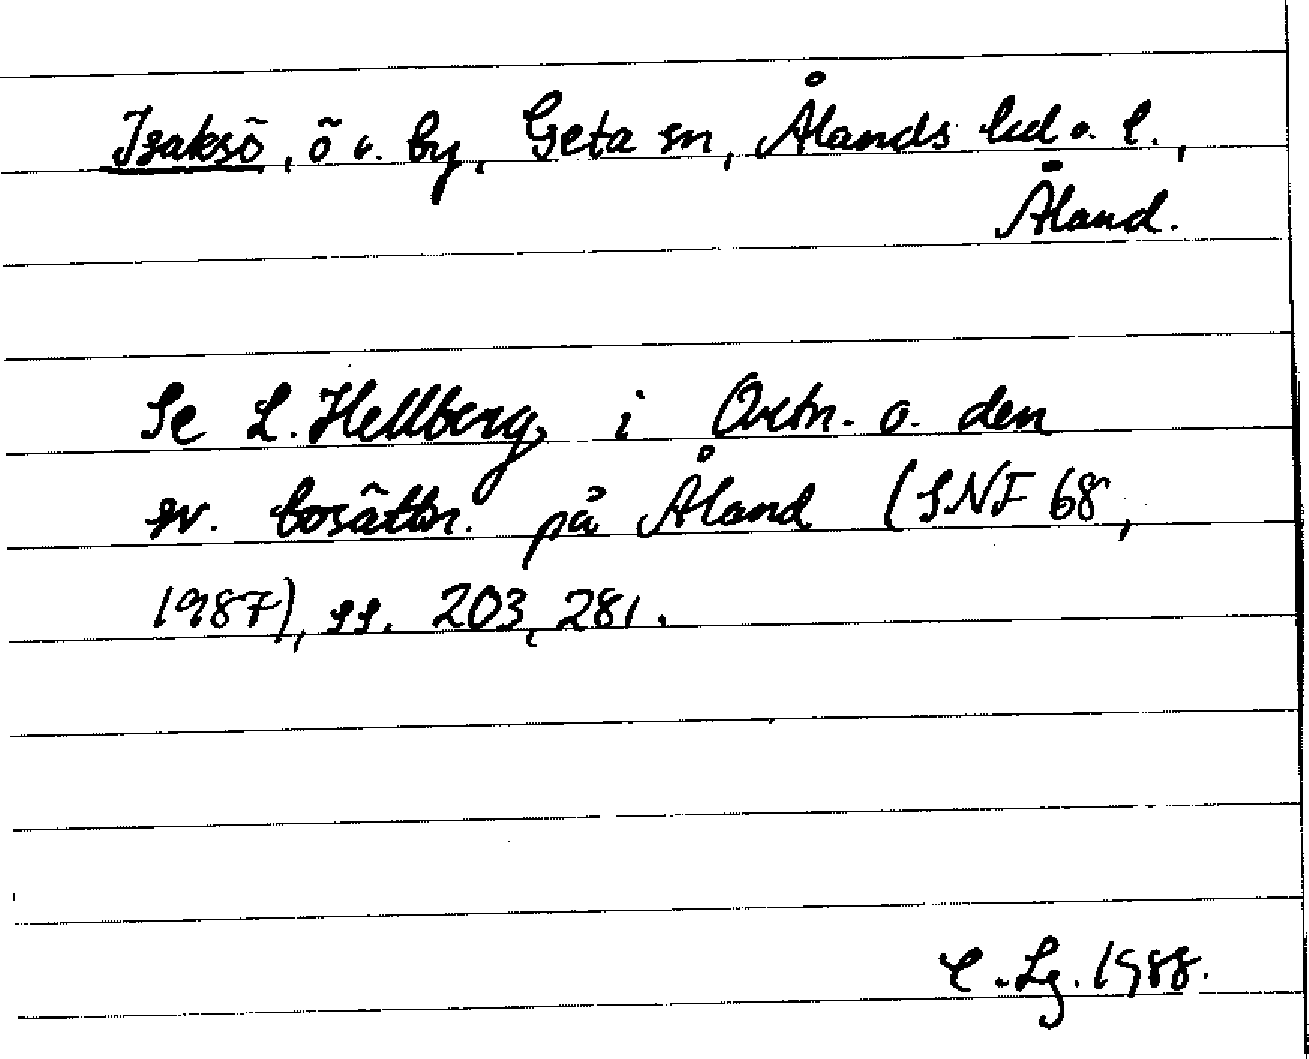 Isaksö, ö o. by, Geta sn, Ålands hd o. l.,
Åland.
Se L. Hellberg, i Ortn. o. den
sv. bosättn. på Åland (SNF 68,
1987), ss. 203, 281.
C. Lg. 1988.